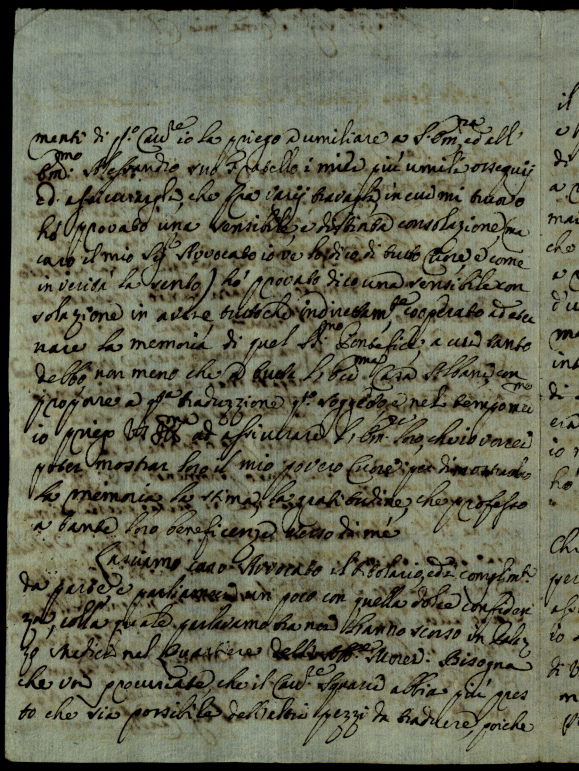 menti di q.o Cav.re io la priego a umiliare a S. Em.za ed all'
Em.mo Alessandro suo Fratello i miei più umili ossequij
ed assicurargli, che fra varij travagli in cui mi truovo
ho provato una sensibile, e distinta consolazione (ma
caro il mio Sig.r Avvocato io ve lo dico di tutto Cuore, e come
in verità la sento) hò provato dico una sensibile con
solazione in avere tuttoche indirettam.te cooperato ad eter
nare la memoria di quel S.mo Pontefice a cui tanto
debbo non meno che a tutta l'Ecc.ma Casa Albani, con
proporre a q.ta traduzzione q.o soggetto, e nel tempo med.mo
io priego ad assicurare l'Em. loro, che io vorrei
poter mostrar loro il mio povero Cuore per dimostrarle
la memoria la stima, la gratitudine, che professo
a tante loro beneficenze verso di me
Lasciamo caro Avvocato il titolario, ed i complim.ti
da parte, e parliamo un poco con quella dolce confiden
za, colla quale parlavamo l'anno scorso in Palaz
zo nel Quartiere Bisogna
che voi procuriate, che il Cav.re Squarci abbia più pres
to che sia possibile dell'altri pezzi da tradurre, poiche
il
di
a
mar
che
a
ma
int
di
io
ho
Ch
per
io
di
m